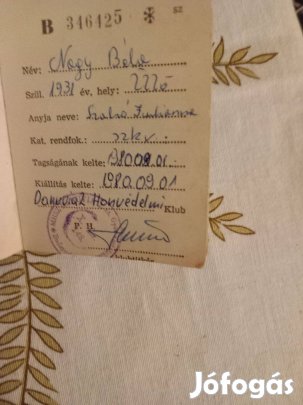 B 346425 sz
Név: Nagy Béla
Szül. 1931 év, hely: Üllő
Anyja neve: Szabó Julianna
Kat. rendfok.: szkv.
Tagságának kelte: 1980.09.01.
Kiállítás kelte: 1980.09.01
Honvédelmi Klub
P. H.
Jófogás